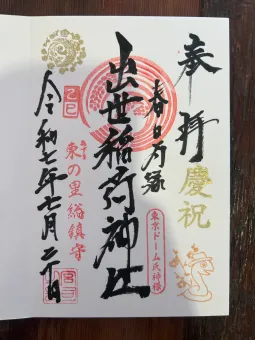 奉拝
慶祝
春日局縁
東京ドーム氏神様
出世稲荷神社
乙巳
東の里総鎮守
令和七年七月二十日